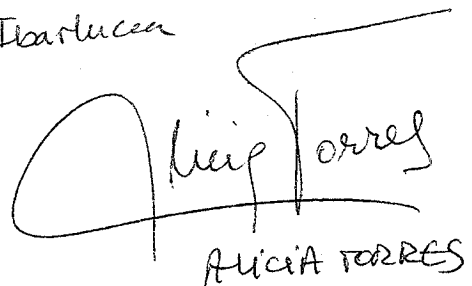 Ibarlucea
Alicia Torres
ALICIA TORRES